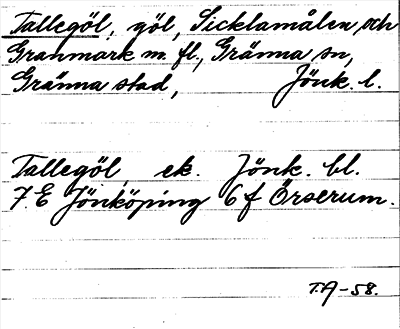 Tallegöl, göl, Sicklamålen och
Granmark m. fl., Gränna sn,
Gränna stad, Jönk. l.
Tallegöl, ek. Jönk. bl.
7 E Jönköping 6 f Örserum.
T.A-58.